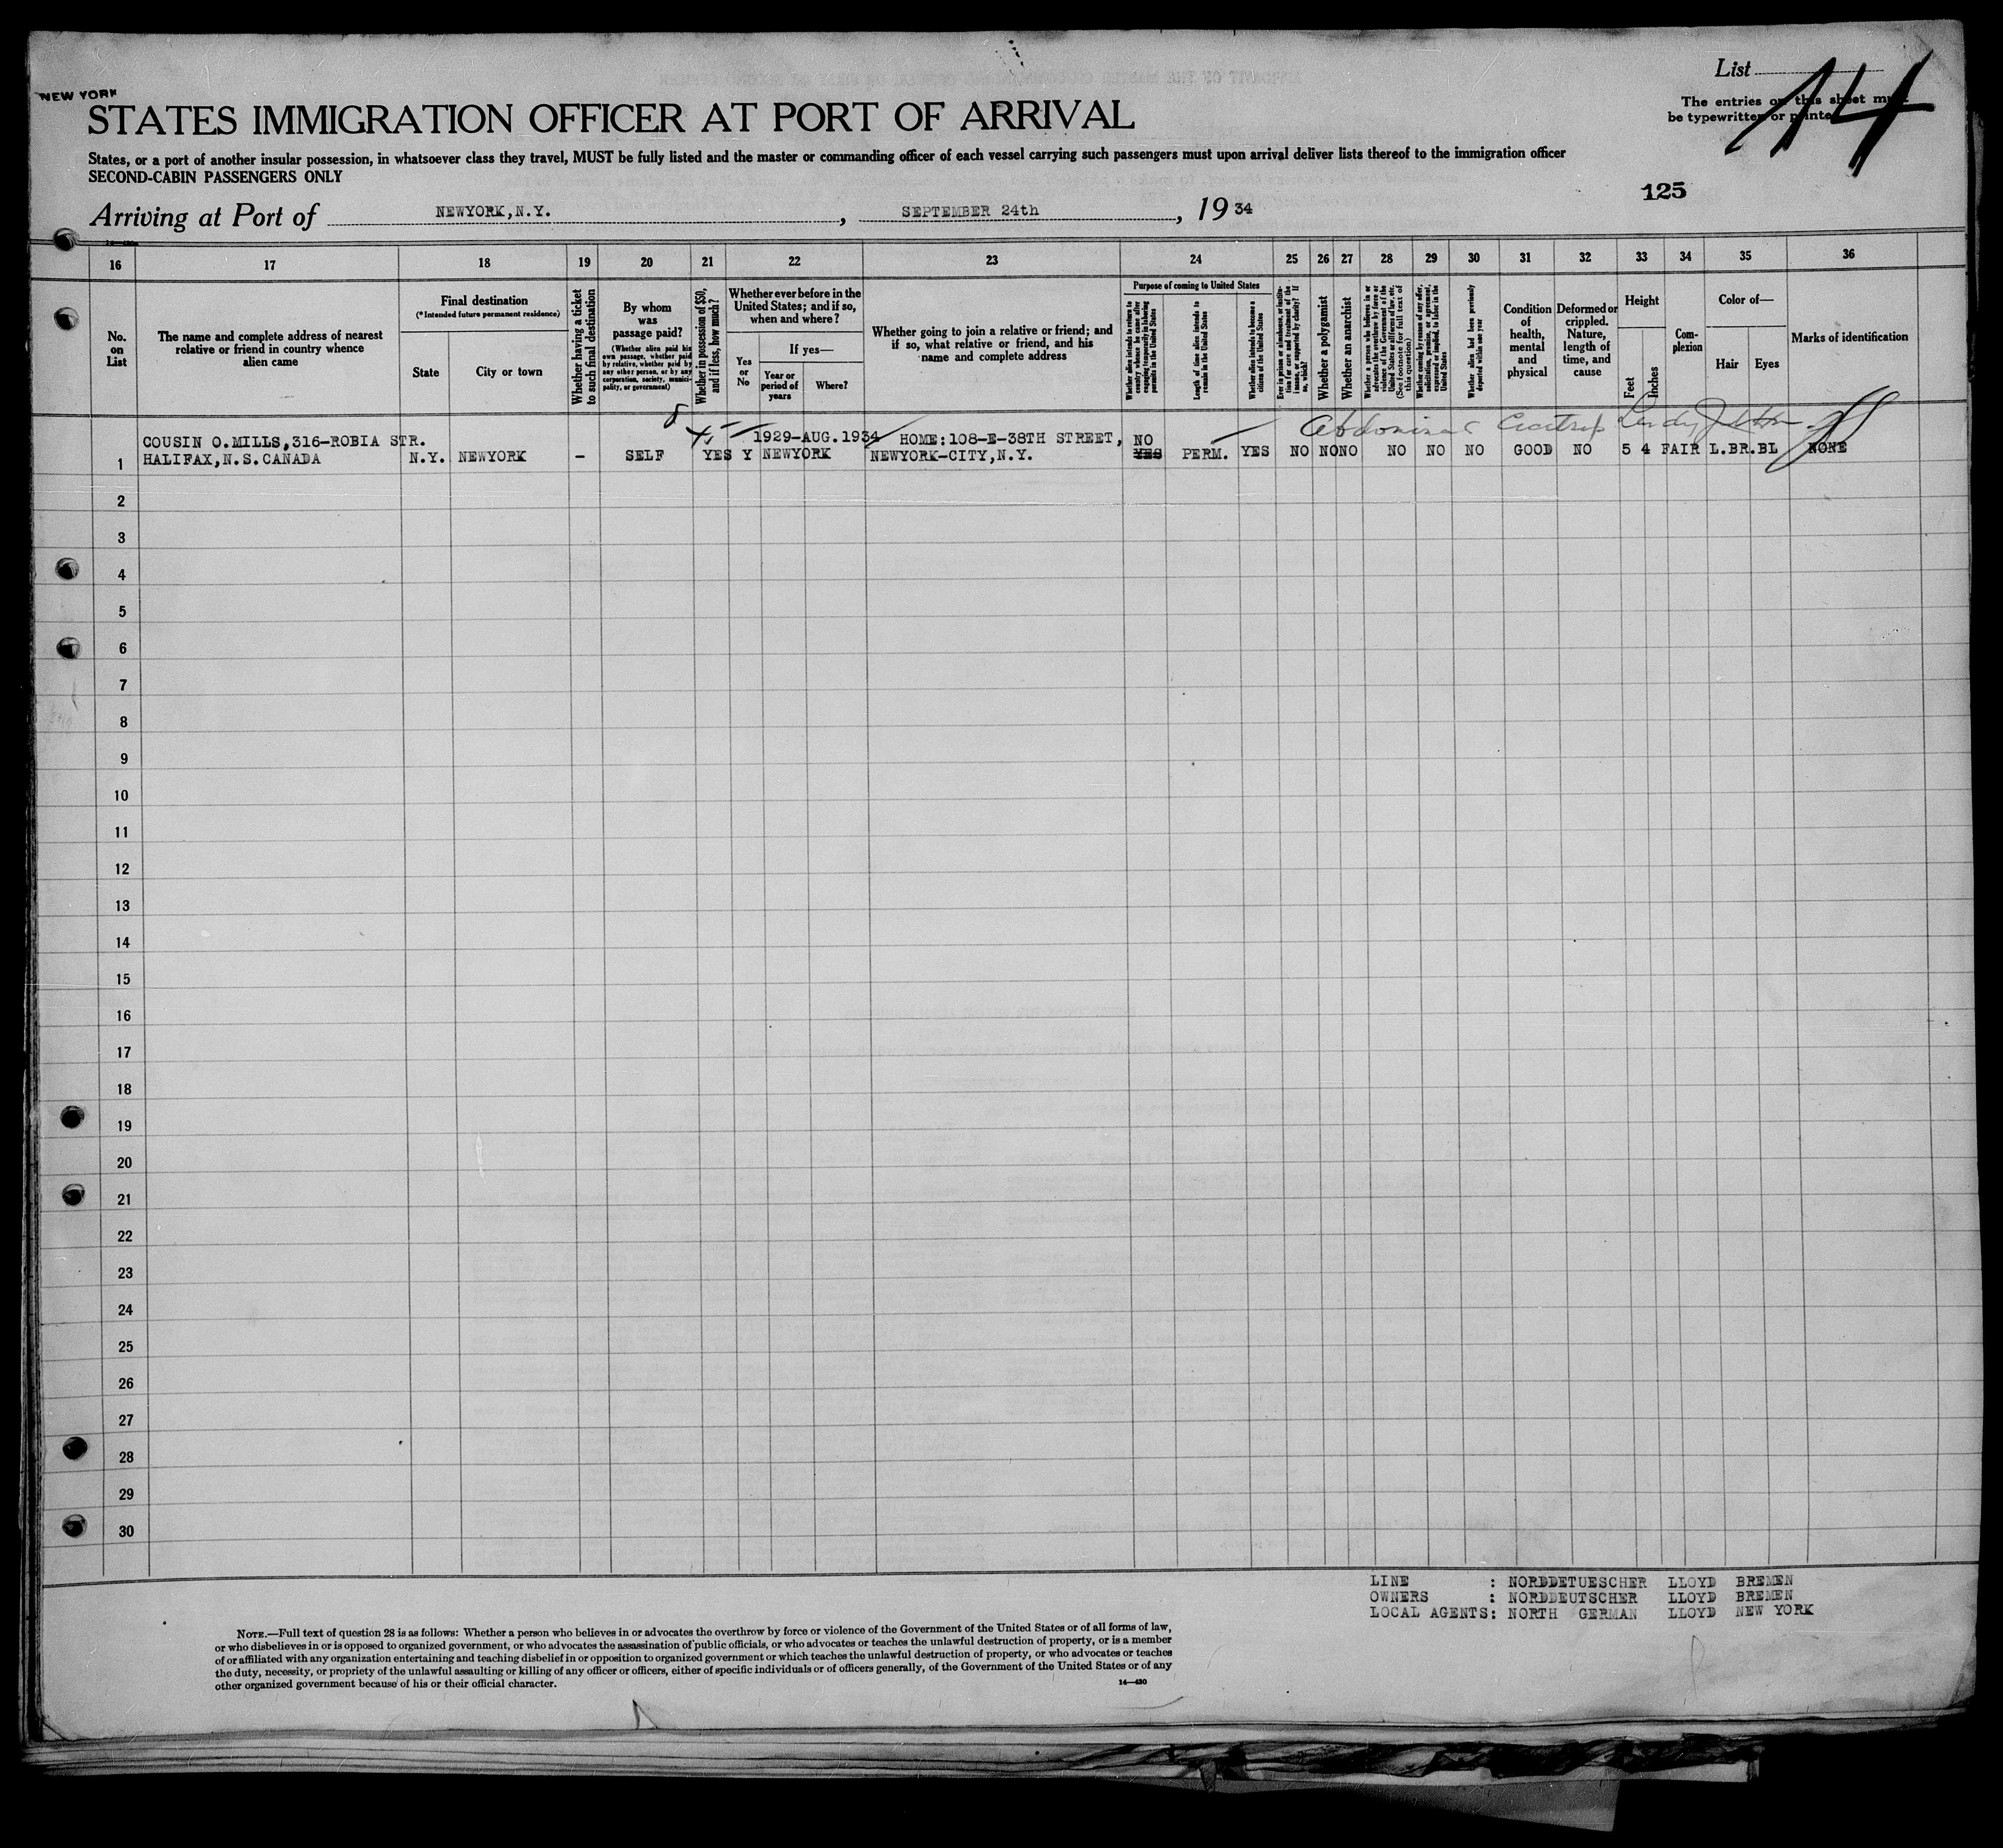 NEW YORK
List
14
STATES IMMIGRATION OFFICER AT PORT OF ARRIVAL
The entries on this sheet must
be typewritten or printed
States, or a port of another insular possession, in whatsoever class they travel, MUST be fully listed and the master or commanding officer of each vessel carrying such passengers must upon arrival deliver lists thereof to the immigration officer
SECOND-CABIN PASSENGERS ONLY
125
Arriving at Port of NEWYORK,N.Y. , SEPTEMBER 24th , 19 34
16 17 18 19 20 21 22 23 24 25 26 27 28 29 30 31 32 33 34 35 36
No. on List
The name and complete address of nearest relative or friend in country whence alien came
Final destination
(* Intended future permanent residence)
State
City or town
Whether having a ticket to such final destination
By whom was passage paid?
(Whether alien paid his own passage, whether paid by relative, whether paid by any other person, or by any corporation, society, municipality, or government)
Whether in possession of $50, and if less, how much?
Whether ever before in the United States; and if so, when and where?
Yes or No
If yes—
Year or period of years
Where?
Whether going to join a relative or friend; and if so, what relative or friend, and his name and complete address
Purpose of coming to United States
Whether alien intends to return to country whence he came after engaging temporarily in laboring pursuits in the United States
Length of time alien intends to remain in the United States
Whether alien intends to become a citizen of the United States
Ever in prison or almshouse, or institution for care and treatment of the insane, or supported by charity? If so, which?
Whether a polygamist
Whether an anarchist
Whether a person who believes in or advocates the overthrow by force or violence of the Government of the United States or all forms of law, etc. (See footnote for full text of this question)
Whether coming by reason of any offer, solicitation, promise, or agreement, expressed or implied, to labor in the United States
Whether alien had been previously deported within one year
Condition of health, mental and physical
Deformed or crippled. Nature, length of time, and cause
Height
Feet
Inches
Com-plexion
Color of—
Hair
Eyes
Marks of identification
Abdominal Cicatrix
COUSIN O.MILLS,316-ROBIA STR. 1929-AUG.1934 HOME:108-E-38TH STREET, NO
1 HALIFAX,N.S.CANADA N.Y. NEWYORK - SELF YES Y NEWYORK NEWYORK-CITY,N.Y. YES PERM. YES NO NO NO NO NO NO GOOD NO 5 4 FAIR L.BR. BL NONE
2
3
4
5
6
7
8
9
10
11
12
13
14
15
16
17
18
19
20
21
22
23
24
25
26
27
28
29
30
LINE : NORDDETUESCHER LLOYD BREMEN
OWNERS : NORDDEUTSCHER LLOYD BREMEN
LOCAL AGENTS: NORTH GERMAN LLOYD NEW YORK
NOTE.—Full text of question 28 is as follows: Whether a person who believes in or advocates the overthrow by force or violence of the Government of the United States or of all forms of law,
or who disbelieves in or is opposed to organized government, or who advocates the assassination of public officials, or who advocates or teaches the unlawful destruction of property, or is a member
of or affiliated with any organization entertaining and teaching disbelief in or opposition to organized government or which teaches the unlawful destruction of property, or who advocates or teaches
the duty, necessity, or propriety of the unlawful assaulting or killing of any officer or officers, either of specific individuals or of officers generally, of the Government of the United States or of any
other organized government because of his or their official character.
14—430